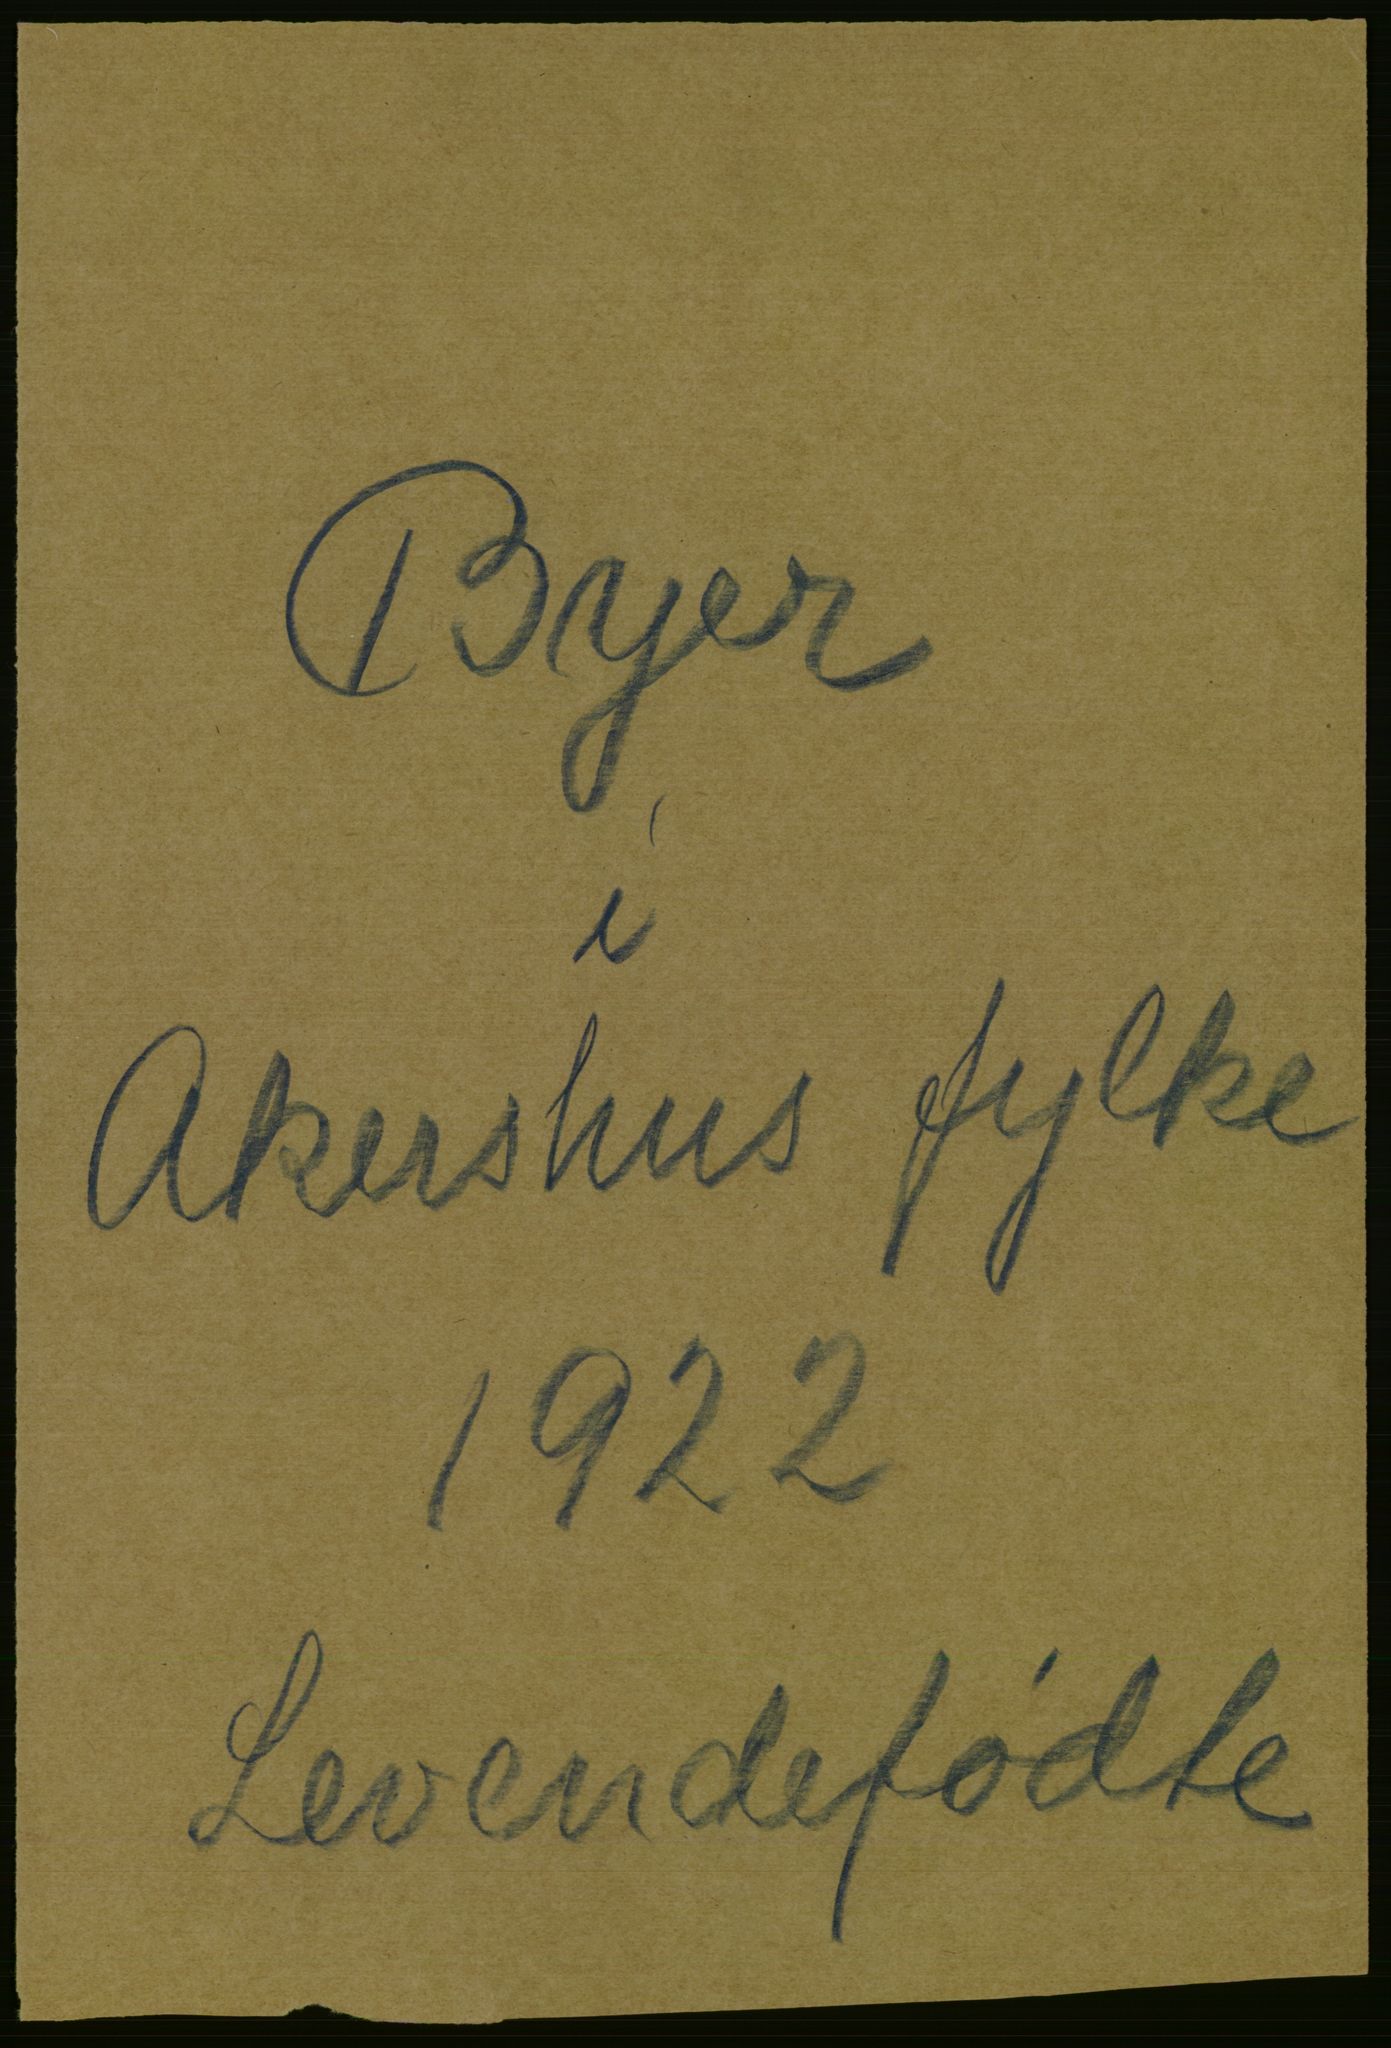 Byer
i
Akershus fylke
1922
Levendefødte